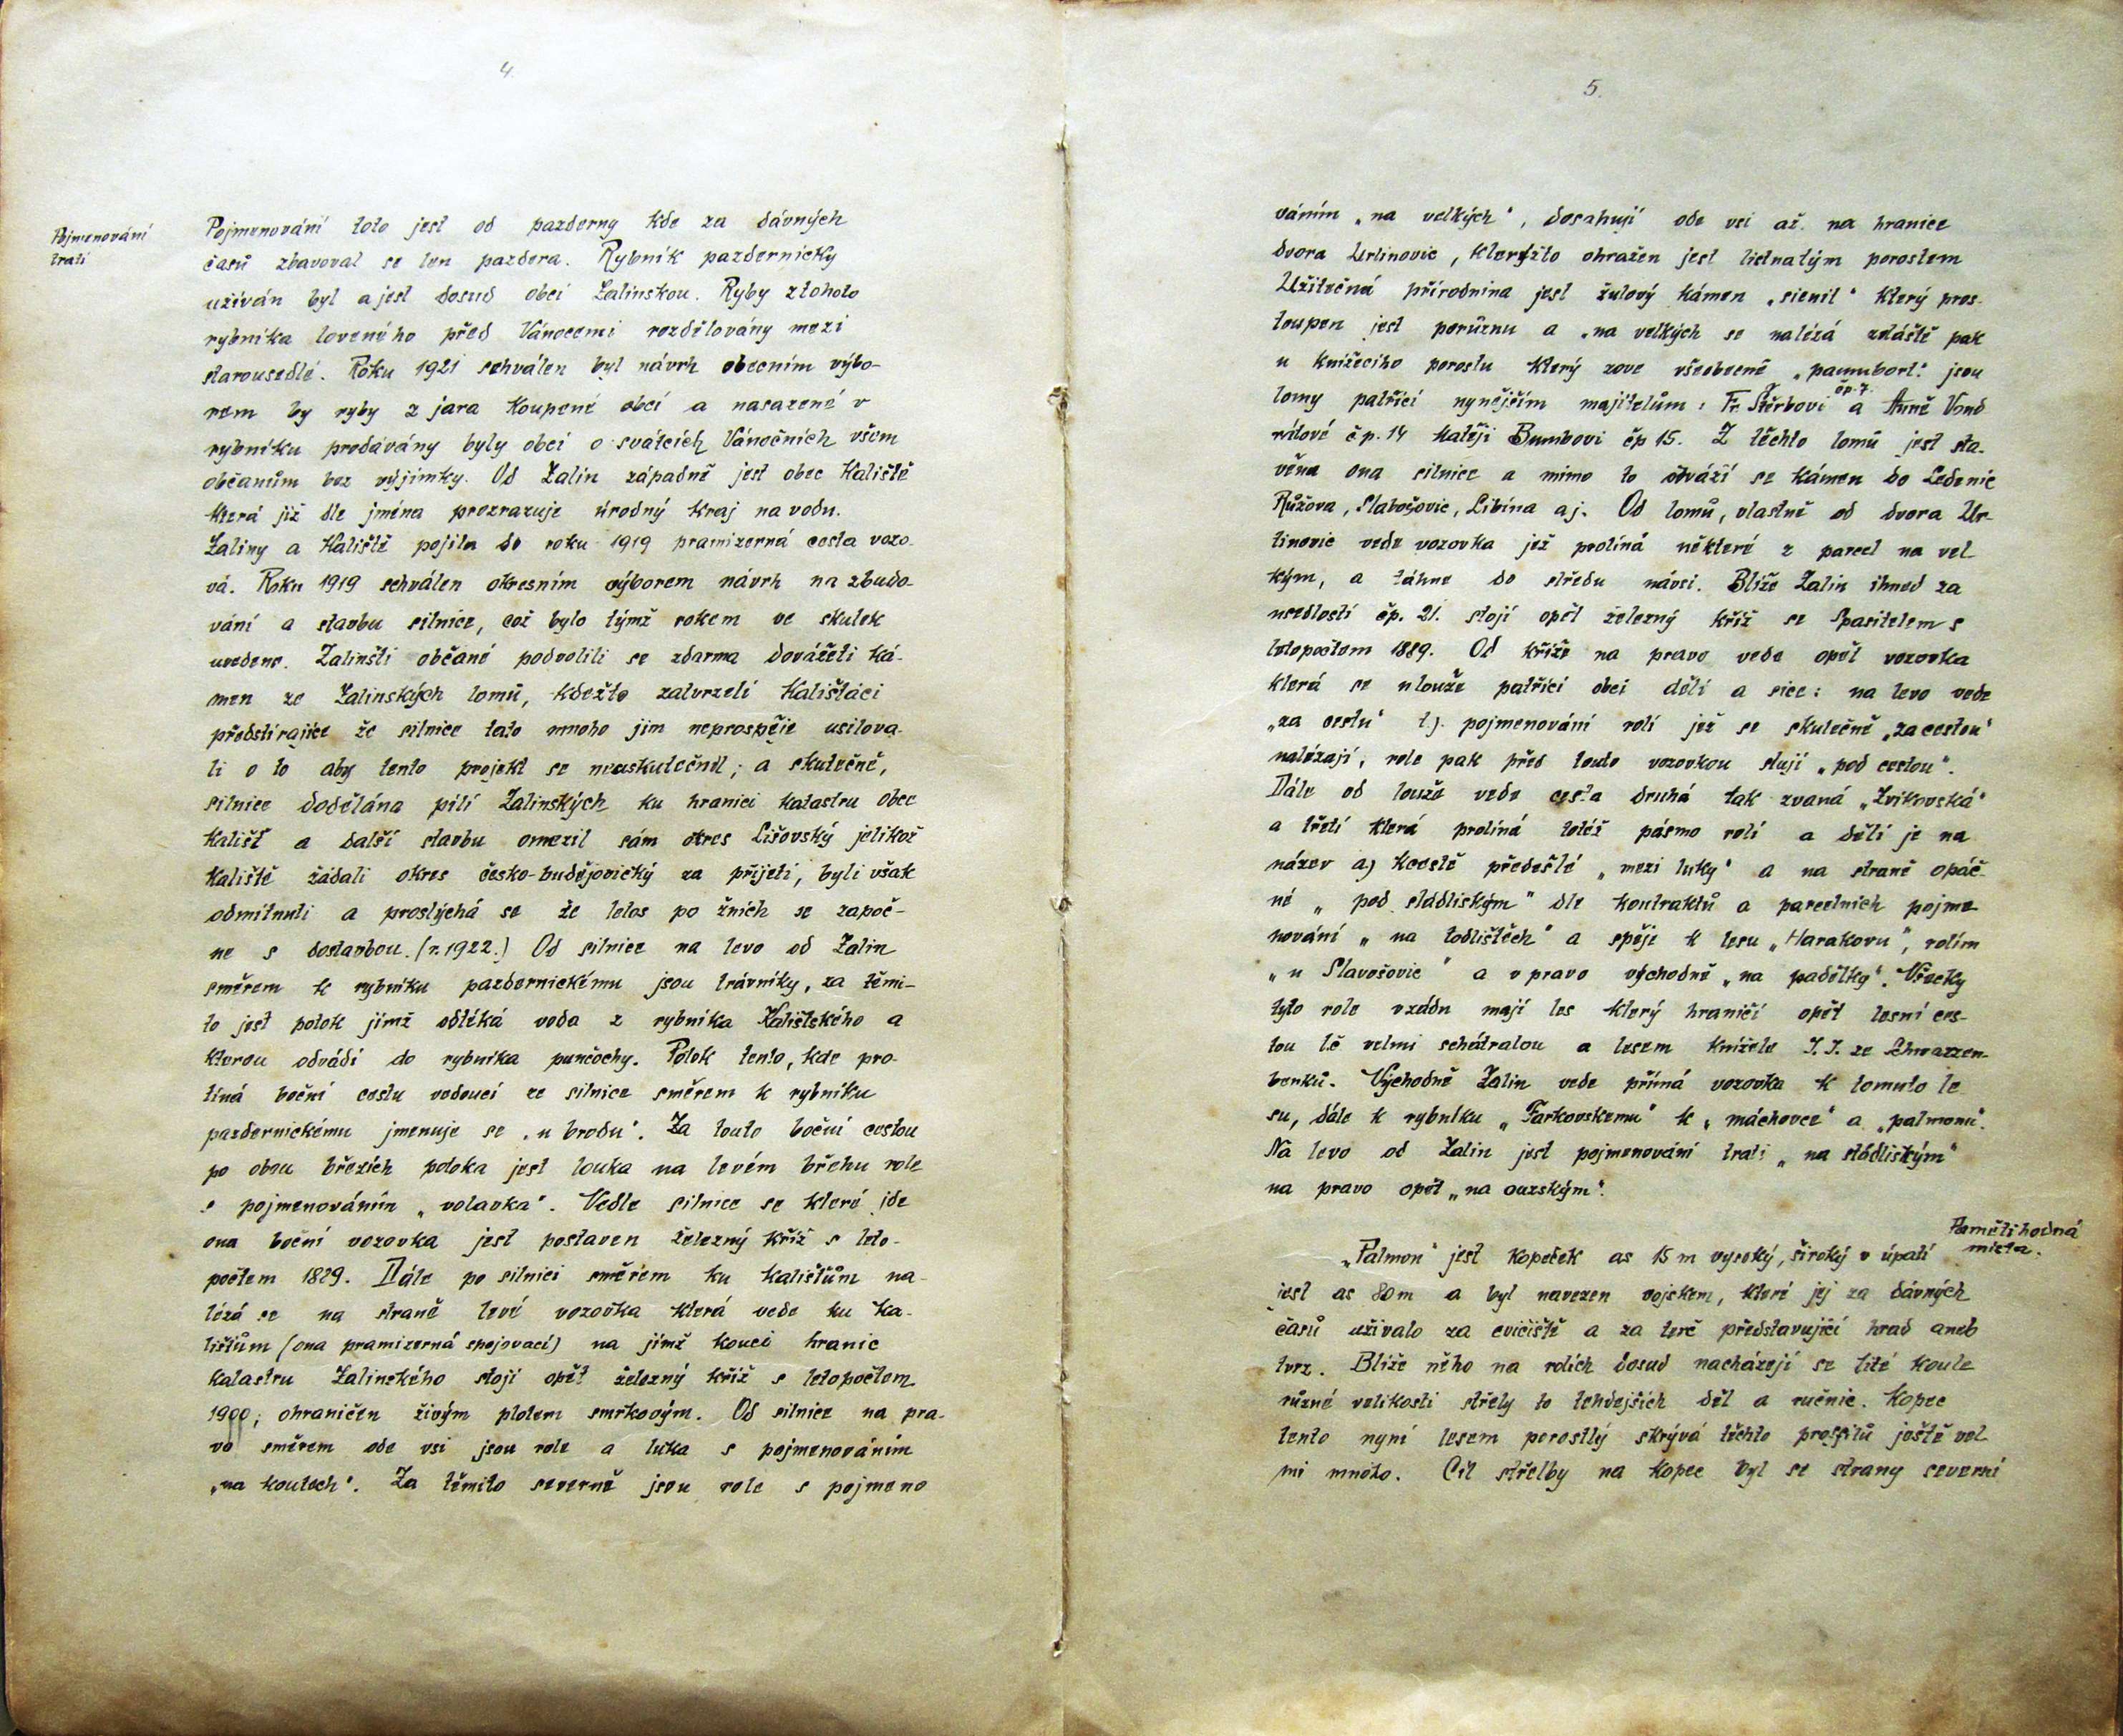 4.
Pojmenování
tratí
Pojmenování toto jest od pazderny kde za dávných
časů zbavoval se len pazdera. Rybník pazdernický
užíván byl a jest dosud obcí Zalinskou. Ryby z tohoto
rybníka loveného před Vánocemi rozdělovány mezi
starousedlé. Roku 1921 schválen byl návrh obecním výbo-
rem by ryby z jara koupené obcí a nasazené v
rybníku prodávány byly obcí o svátcích Vánočních všem
občanům bez výjimky. Od Zalin západně jest obec Kaliště
která již dle jména prozrazuje úrodný kraj na vodu.
Zaliny a Kaliště pojila do roku 1919 pramizerná cesta vozo-
vá. Roku 1919 schválen okresním výborem návrh na zbudo-
vání a stavbu silnice, což bylo týmž rokem ve skutek
uvedeno. Zalinští občané podvolili se zdarma dovážeti ká-
men ze Zalinských lomů, kdežto zatvrzelí Kališťáci
předstírajíce že silnice tato mnoho jim neprospěje usilova-
li o to aby tento projekt se neuskutečnil; a skutečně,
silnice dodělána pílí Zalinských ku hranici katastru obce
Kališť a další stavbu omezil sám okres Lišovský jelikož
Kaliště žádali okres česko-budějovický za přijetí, byli však
odmítnuti a proslýchá se že letos po žních se započ-
ne s dostavbou. (r. 1922.) Od silnice na levo od Zalin
směrem k rybníku pazdernickému jsou trávníky, za těmi-
to jest potok jímž odtéká voda z rybníka Kališťského a
kterou odvádí do rybníka punčochy. Potok tento, kde pro-
tíná boční cestu vedoucí ze silnice směrem k rybníku
pazdernickému jmenuje se „u brodu“. Za touto boční cestou
po obou březích potoka jest louka na levém břehu role
s pojmenováním „volavka“. Vedle silnice se které jde
ona boční vozovka jest postaven železný kříž s leto-
počtem 1829. Dále po silnici směrem ku Kalištům na-
lézá se na straně levé vozovka která vede ku Ka-
lištům (ona pramizerná spojovací) na jímž konci hranic
katastru Zalinského stojí opět železný kříž s letopočtem
1900; ohraničen živým plotem smrkovým. Od silnice na pra-
vo směrem ode vsi jsou role a luka s pojmenováním
„na koutech“. Za těmito severně jsou role s pojmeno
5.
váním „na velkých“, dosahují ode vsi až na hranice
dvora Urtinovic, kterýžto ohražen jest listnatým porostem
Užitečná přírodnina jest žulový kámen „sienit“ který pros-
toupen jest porůznu a „na velkých se nalézá zvláště pak
u knížecího porostu který zove všeobecně „paumbort“ jsou
čp. 7.
lomy patřící nynějším majitelům: Fr. Štěrbovi a Anně Vond
rátové čp. 14 Matěji Bumbovi čp 15. Z těchto lomů jest sta-
věna ona silnice a mimo to odváží se kámen do Ledenic
Růžova, Slabošovic, Libína aj. Od lomů, vlastně od dvora Ur-
tinovic vede vozovka jež protíná některé z parcel na vel
kým, a táhne do středu návsi. Blíže Zalin ihned za
usedlostí čp. 21. stojí opět železný kříž se Spasitelem s
letopočtem 1889. Od kříže na pravo vede opět vozovka
která se u louže patřící obci dělí a sice: na levo vede
„za cestu“ t.j. pojmenování rolí jež se skutečně „za cestou“
nalézají, role pak před touto vozovkou slují „pod cestou“.
Dále od louže vede cesta druhá tak zvaná „Zvíkovská“
a třetí která protíná totéž pásmo rolí a dělí je na
název a) k cestě předešlé „mezi luky“ a na straně opáč-
né „pod sládliským“ dle kontraktů a parcelních pojme
nování „na todlištěch“ a spěje k lesu „Harakovu“, rolím
„u Slavošovic“ a v pravo východně „na padělky“. Všecky
tyto role vzádu mají les který hraničí opět lesní ces-
tou té velmi schátralou a lesem knížete J. J. ze Schwarzen-
berků. Východně Zalin vede přímá vozovka k tomuto le
su, dále k rybníku „Farkovskemu“ k „máchovce“ a „palmonu“.
Na levo od Zalin jest pojmenování trati „na stádliským“
na pravo opět „na ouzským“.
Pamětihodná
místa.
„Palmon“ jest kopeček as 15 m vysoký, široký v úpatí
jest as 80 m a byl navezen vojskem, které jej za dávných
časů užívalo za cvičiště a za terč představující hrad aneb
tvrz. Blíže něho na rolích dosud nacházejí se lité koule
různé velikosti střely to tehdejších děl a ručnic. Kopec
tento nyní lesem porostlý skrývá těchto projektilů ještě vel
mi mnoho. Cíl střelby na kopec byl se strany severní